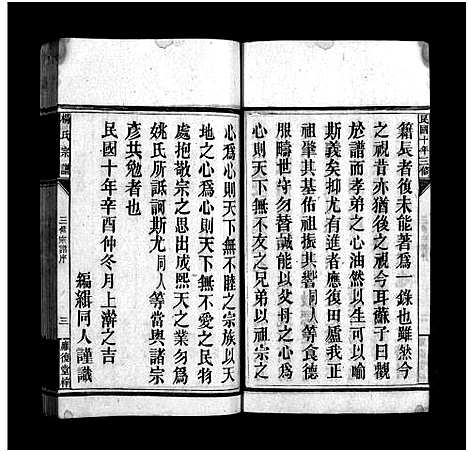 民國十年三修
籍長者復未能著爲一錄也雖然今
之視昔亦猶後之視今耳蘇子曰觀
於譜而孝弟之心油然以生可以喻
斯義矣抑尤有進者應復田廬我正
祖肇其基佑祖振其響同人等食德
服疇世守勿替誠能以父母之心爲
心則天下無不友之兄弟以祖宗之
心爲心則天下無不睦之宗族以天
地之心爲心則天下無不愛之民物
處抱敬宗之思出成熙天之業勿爲
姚氏所詆訶斯尤同人等當與諸宗
彥共勉者也
民國十年辛酉仲冬月上澣之吉
編緝同人謹識
楊氏宗譜
三修宗譜序
三